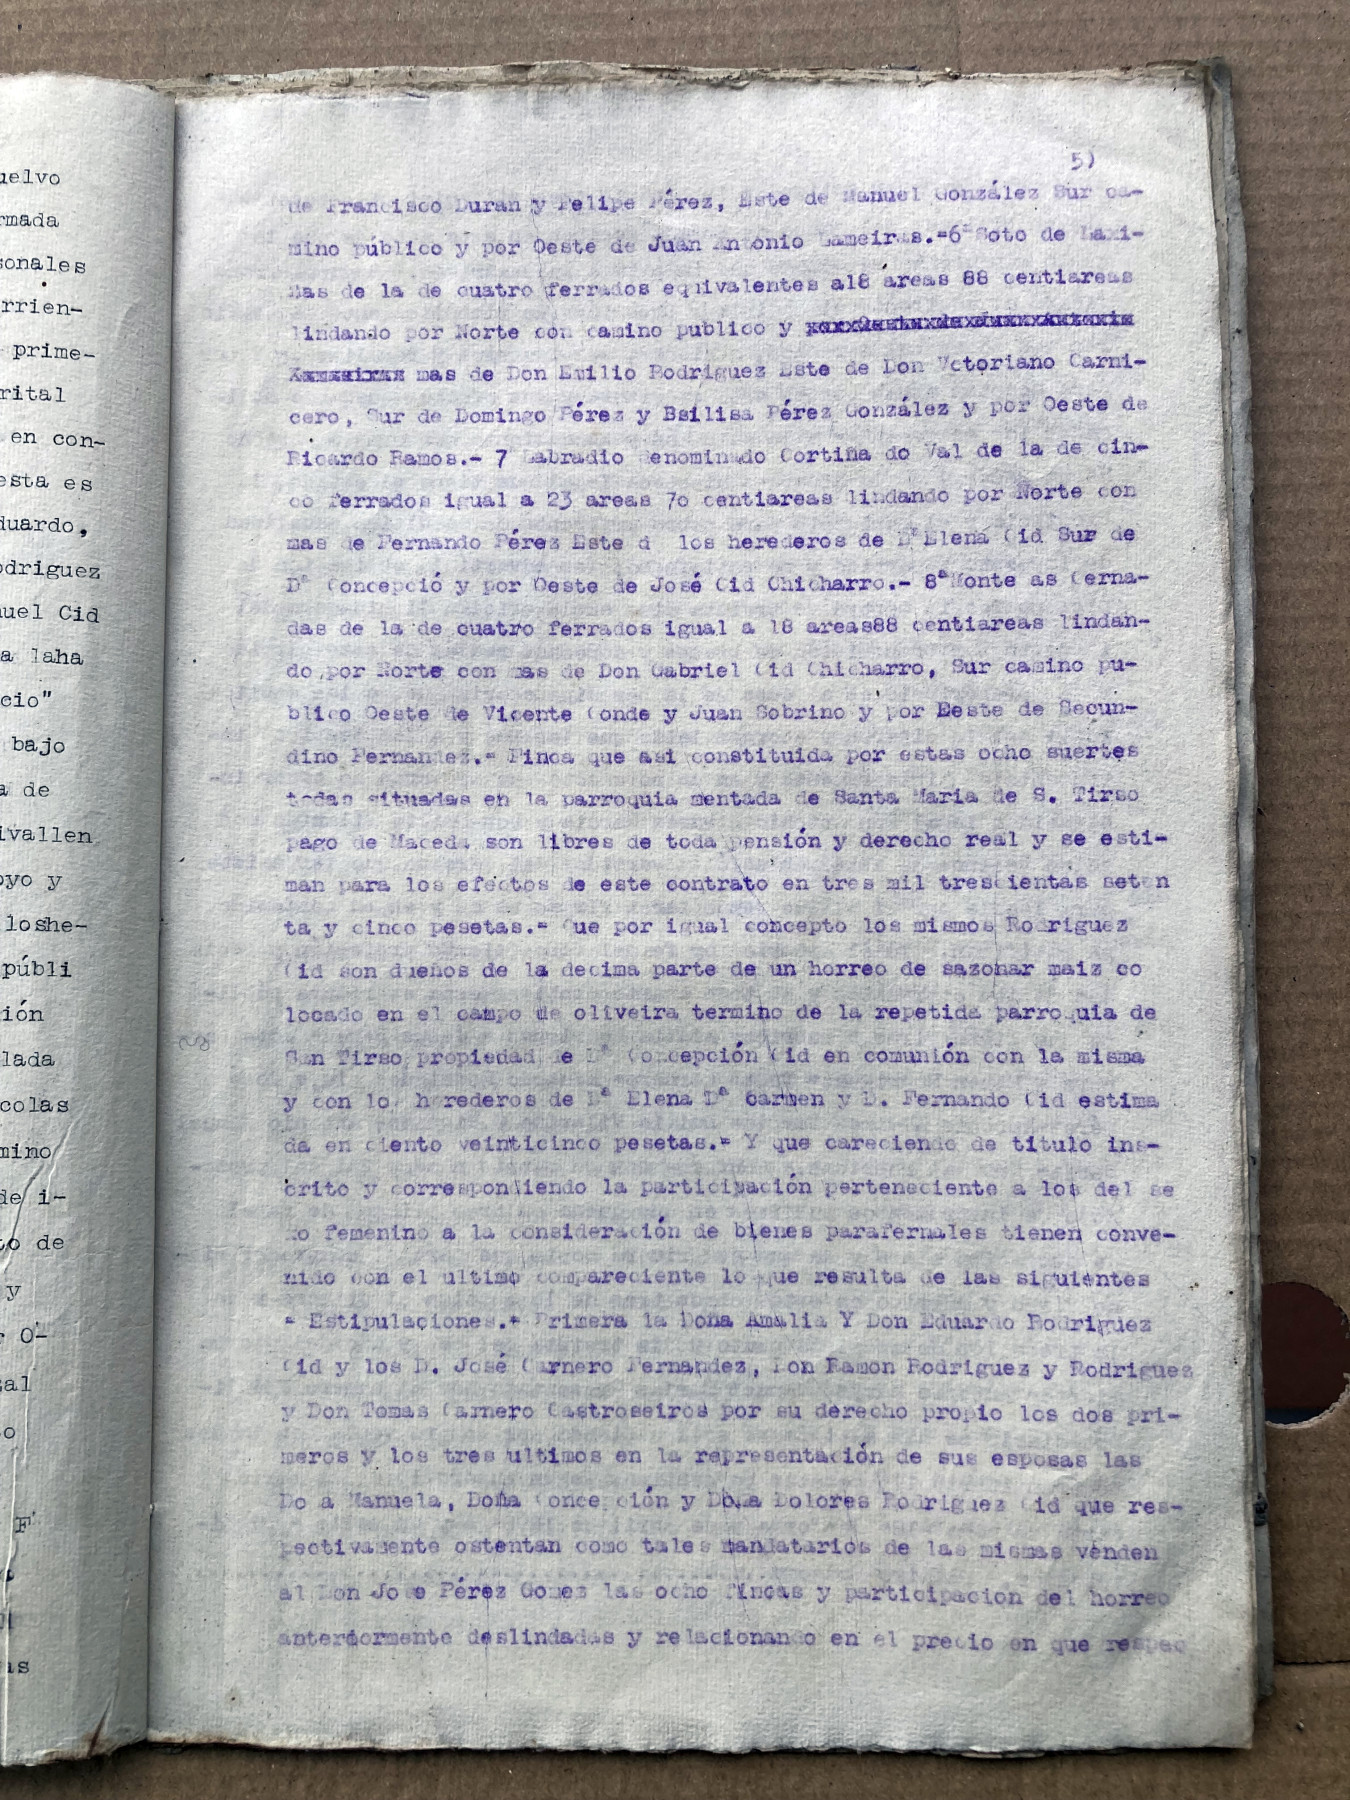 uelvo
rmada
sonales
rrien-
prime-
rital
en con-
esta es
duardo,
odriguez
nuel Cid
a laha
cio"
bajo
a de
ivallen
oyo y
loshe-
públi
ión
lada
colas
mino
de i-
to de
y
r O-
zal
o
F
as
5)
de Francisco Duran y Felipe Pérez, Este de Manuel González Sur ca-
mino público y por Oeste de Juan Antonio Lameiras.=6ª Soto de Laxi-
Mas de la de cuatro ferrados equivalentes a18 áreas 88 centiareas
lindando por Norte con camino publico y
mas de Don Emilio Rodriguez Este de Don Vctoriano Carni-
cero, Sur de Domingo Pérez y Bsilisa Pérez González y por Oeste de
Ricardo Ramos.- 7 Labradio denominado Cortiña do Val de la de cin-
co ferrados igual a 23 areas 7o centiareas lindando por Norte con
mas de Fernando Pérez Este d los herederos de Dª Elena Cid Sur de
Dª Concepció y por Oeste de José Cid Chicharro.- 8ª Monte as Cerna-
das de la de cuatro ferrados igual a 18 areas88 centiareas lindan-
do por Norte con mas de Don Gabriel Cid Chicharro, Sur camino pu-
blico Oeste de Vicente Conde y Juan Sobrino y por Eeste de Secun-
dino Fernandez.= Finca que asi constituida por estas ocho suertes
todas situadas en la parroquia mentada de Santa Maria de S. Tirso
pago de Maceda son libres de toda pensión y derecho real y se esti-
man para los efectos de este contrato en tres mil trescientas seten
ta y cinco pesetas.= Que por igual concepto los mismos Rodriguez
Cid son dueños de la decima parte de un horreo de sazonar maiz co
locado en el campo de oliveira termino de la repetida parroquia de
San Tirso propiedad de Dª Concepción Cid en comunión con la misma
y con los herederos de Dª Elena Dª Carmen y D. Fernando Cid estima
da en ciento veinticinco pesetas.= Y que careciendo de titulo ins-
crito y correspondiendo la participación perteneciente a los del se
xo femenino a la consideración de bienes parafernales tienen conve-
nido con el ultimo compareciente lo que resulta de las siguientes
= Estipulaciones.= Primera la Doña Amalia Y Don Eduardo Rodriguez
Cid y los D. José Carnero Fernandez, Don Ramon Rodriguez y Rodriguez
y Don Tomas Carnero Castroseiros por su derecho propio los dos pri-
meros y los tres ultimos en la representación de sus esposas las
Do a Manuela, Doña Concepción y Doña Dolores Rodriguez Cid que res-
pectivamente ostentan como tales mandatarios de las mismas venden
al Don Jose Pérez Gomez las ocho fincas y participacion del horreo
anteriormente deslindadas y relacionando en el precio en que respec